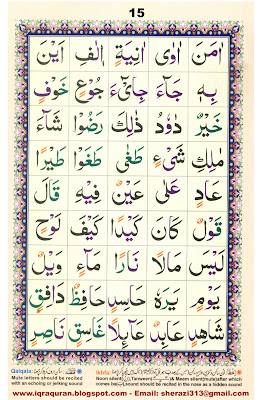 15
اٰمَنَ اٰوٰى اٰنِيَةٍ اِلٰفِ اَيْنَ
بِهٖ جَآءَ جِآيْءَ جُوْعٍ خَوْفٍ
خَيْرٌ دَاوٗدُ ذٰلِكَ رَضُوْا شَآءَ
مٰلِكِ شَيْءٍ طَغٰى طَغَوْا طَيْرًا
عَادٍ عَلٰى عَيْنٌ فِيْهِ قَالَ
قَوْلٌ كَانَ كَيْدًا كَيْفَ لَوْحٍ
لَيْسَ مَالًا نَارًا مَآءٍ وَيْلٌ
يَوْمٍ يَرَهٗ حَاسِدٍ حَافِظٌ دَافِقٍ
شَاهِدٍ عَابِدٌ عَآئِلًا غَاسِقٍ نَاصِرٍ
Qalqala:
Mute letters should be recited with an echoing or jerking sound
Ikhfa:
Noon silent Tanween & Meem silent(mute)after which comes ba sound should be recited in the nose as a hidden sound
www.iqraquran.blogspot.com - Email: sherazi313@gmail.com